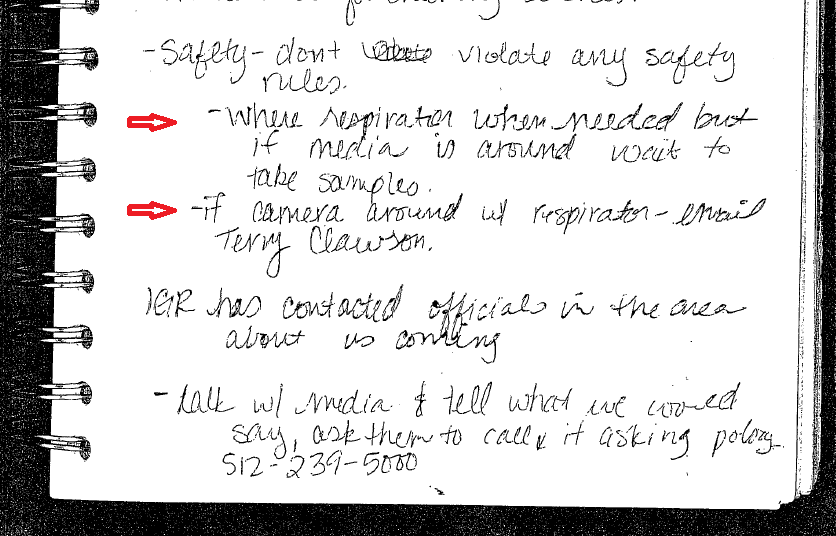 -Safety- dont violate any safety
rules.
-Where respirator when needed but
if media is around wait to
take samples.
-if camera around w/ respirator- email
Terry Clawson.
IGR has contacted officials in the area
about us coming
- talk w/ media & tell what we would
say, ask them to call if asking policy
512-239-5000